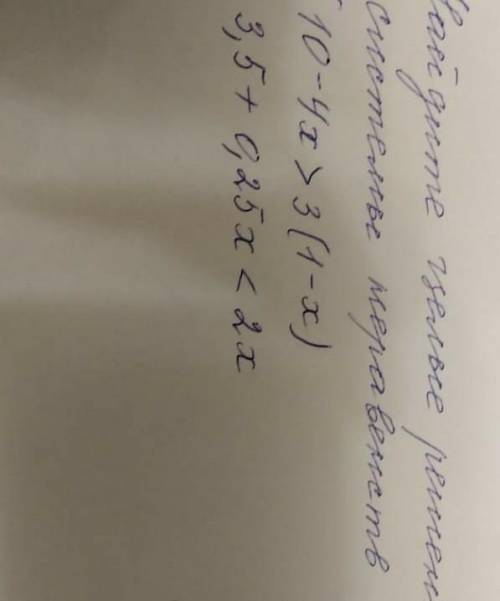 Найдите целые решен
системы неравенств
10-4x>3(1-x)
3,5+0,25x<2x